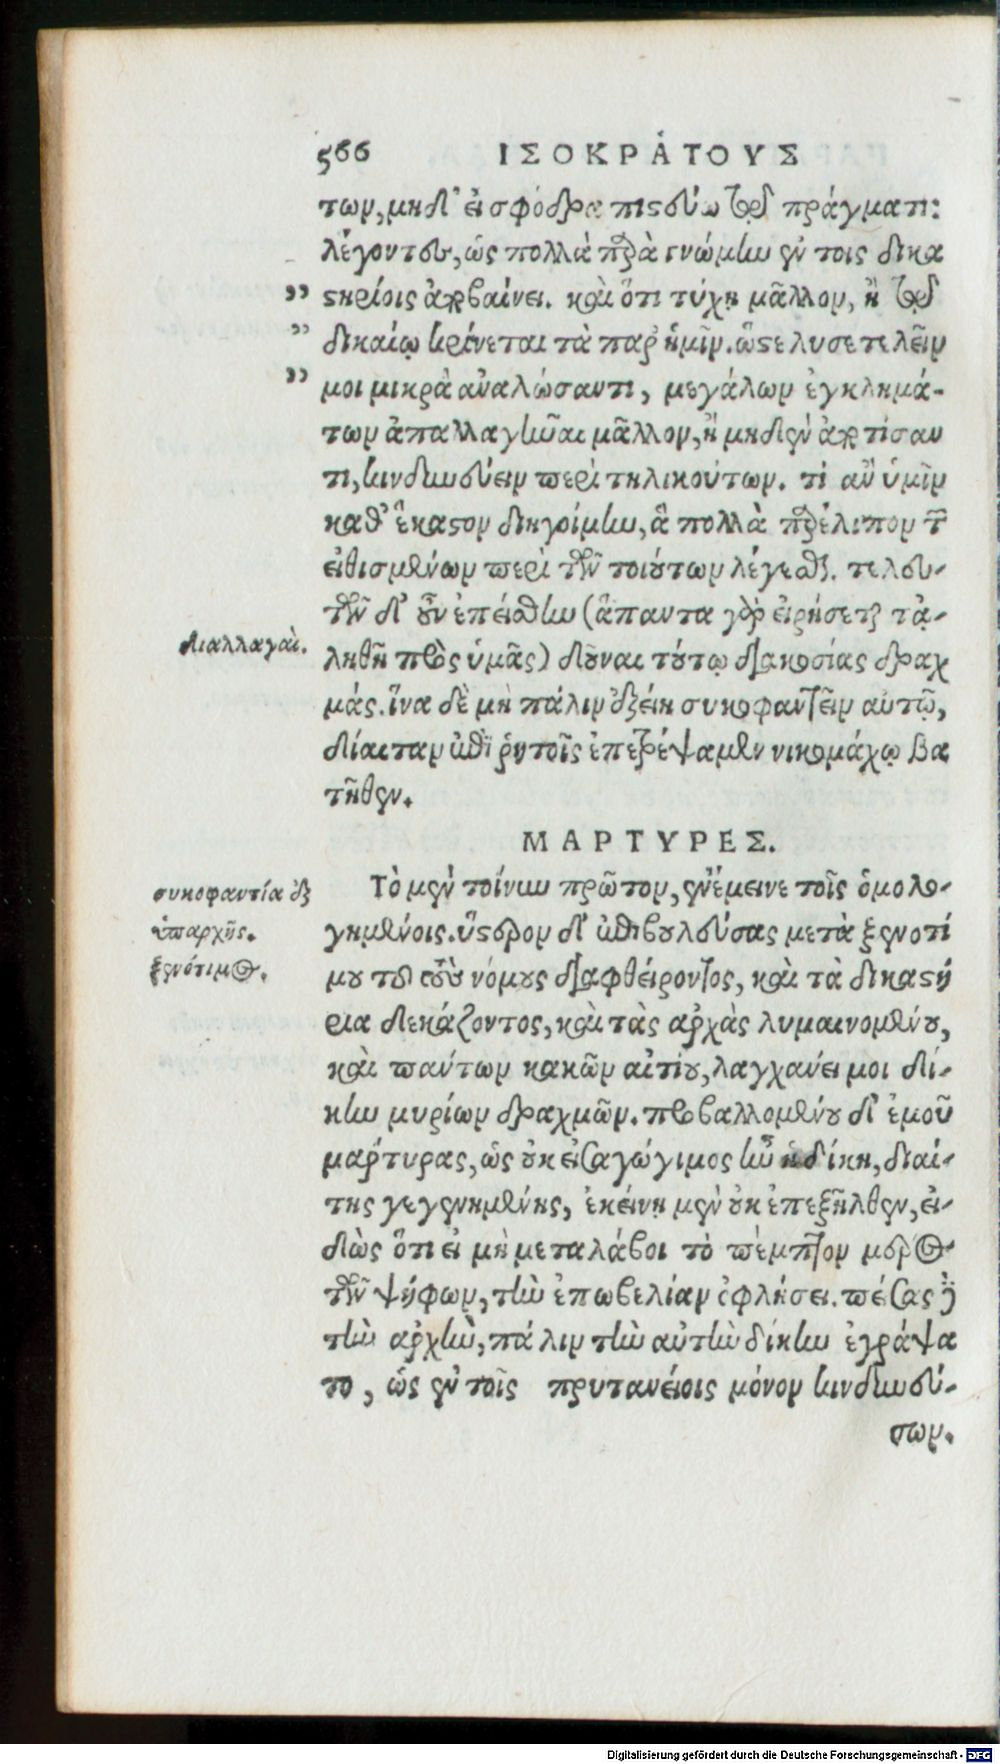 566 ΙΣΟΚΡΆΤΟΥΣ
των, μηδ' εἰ σφόδρα πιστεύω τῷ πράγματι:
λέγοντες, ὡς πολλὰ παρὰ γνώμην ἐν τοῖς δικα
” στηρίοις ἀποβαίνει. καὶ ὅτι τύχῃ μᾶλλον, ἢ τῷ
” δικαίῳ κρίνεται τὰ παρ' ἡμῖν. ὥστε λυσιτελεῖν
” μοι μικρὰ ἀναλώσαντι, μεγάλων ἐγκλημά-
των ἀπαλλαγῆναι μᾶλλον, ἢ μηδὲν ἀποτίσαν
τι, κινδυνεύειν περὶ τηλικούτων. τί ἂν ὑμῖν
καθ' ἕκαστον διηγοίμην, ἃ πολλὰ παρέλιπον τῶν
εἰθισμένων περὶ τῶν τοιούτων λέγεσθαι. τελευ-
τῶν δ' οὖν ἐπείσθην (ἅπαντα γὰρ εἰρήσεται τἀ-
ληθῆ πρὸς ὑμᾶς) δοῦναι τούτῳ διακοσίας δραχ
μάς. ἵνα δὲ μὴ πάλιν ἐξείη συκοφαντεῖν αὐτῷ,
δίαιταν ἐπὶ ῥητοῖς ἐπετρέψαμεν νικομάχῳ βα
τῆθεν.
διαλλαγαί.
ΜΑΡΤΥΡΕΣ.
Τὸ μὲν τοίνυν πρῶτον, ἐνέμεινε τοῖς ὁμολο-
γημένοις. ὕστερον δ' ἐπιβουλεύσας μετὰ ξενοτί
μου τοῦ τοὺς νόμους διαφθείροντος, καὶ τὰ δικαστή
ρια δεκάζοντος, καὶ τὰς ἀρχὰς λυμαινομένου,
καὶ πάντων κακῶν αἰτίου, λαγχάνει μοι δί-
κην μυρίων δραχμῶν. προβαλλομένου δ' ἐμοῦ
μάρτυρας, ὡς οὐκ εἰσαγώγιμος ἦν ἡ δίκη, διαί-
της γεγενημένης, ἐκείνῃ μὲν οὐκ ἐπεξῆλθεν, εἰ-
δὼς ὅτι εἰ μὴ μεταλάβοι τὸ πέμπτον μέρος
τῶν ψήφων, τὴν ἐπωβελίαν ὀφλήσει. πείσας δὲ
τὴν ἀρχὴν, πάλιν τὴν αὐτὴν δίκην ἐγράψα
το, ὡς ἐν τοῖς πρυτανείοις μόνον κινδυνεύ-
σων.
συκοφαντία ἐξ
ὑπαρχῆς.
ξενότιμος.
Digitalisierung gefördert durch die Deutsche Forschungsgemeinschaft - DFG